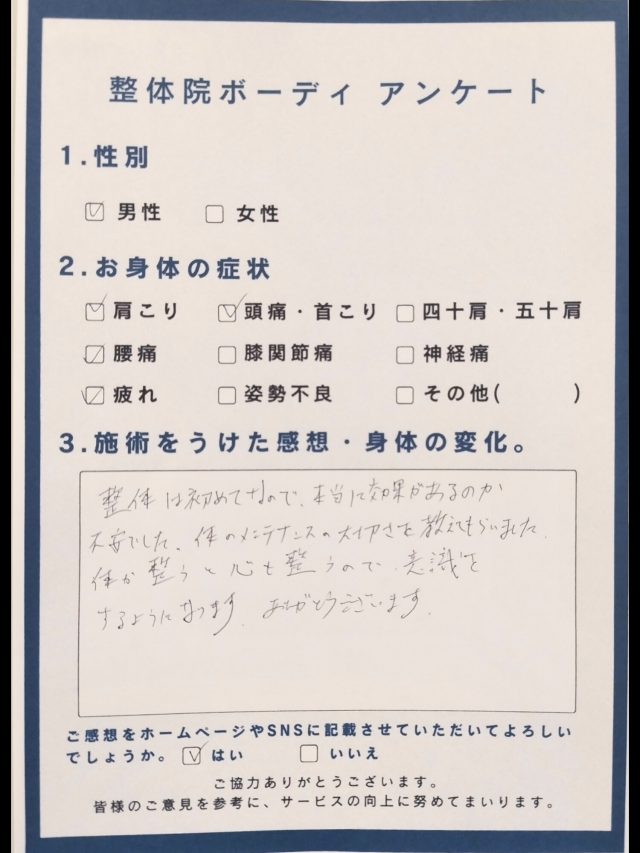 整体院ボーディ アンケート
1.性別
男性 女性
2.お身体の症状
肩こり 頭痛・首こり 四十肩・五十肩
腰痛 膝関節痛 神経痛
疲れ 姿勢不良 その他( )
3.施術をうけた感想・身体の変化。
整体は初めてなので、本当に効果があるのか
不安でした。体のメンテナンスの大切さを教えてもらいました。
体が整うと心も整うので、意識を
するようになってます。ありがとうございます。
ご感想をホームページやSNSに記載させていただいてよろしい
でしょうか。 はい いいえ
ご協力ありがとうございます。
皆様のご意見を参考に、サービスの向上に努めてまいります。